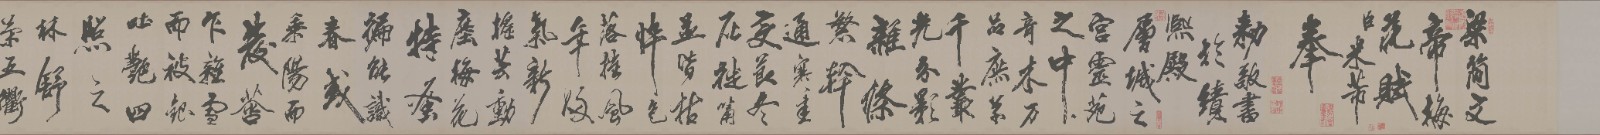 梁簡文
帝梅
花賦
臣米芾
奉
敕敬書
於績
熙殿
層城之
宮靈苑
之中
奇木万
品庶草
千叢
光分影
雜條
繁幹
通寒圭
變節冬
灰徙筩
並皆枯
悴色
落摧風
年歸
氣新
搖芸動
塵梅花
特蚤
偏能識
春或
乘陽而
發
乍雜雪
而被銀
吐艷四
照之
林舒
榮五衢